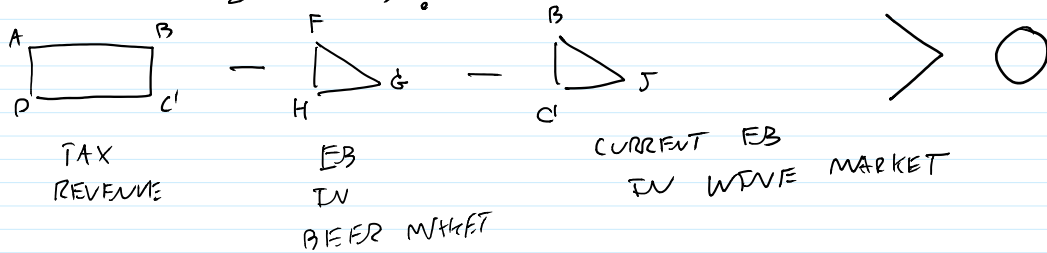 A B
D C'
−
F
H G
−
B
C' J
> O
TAX
REVENUE
EB
IN
BEER MARKET
CURRENT EB
IN WINE MARKET